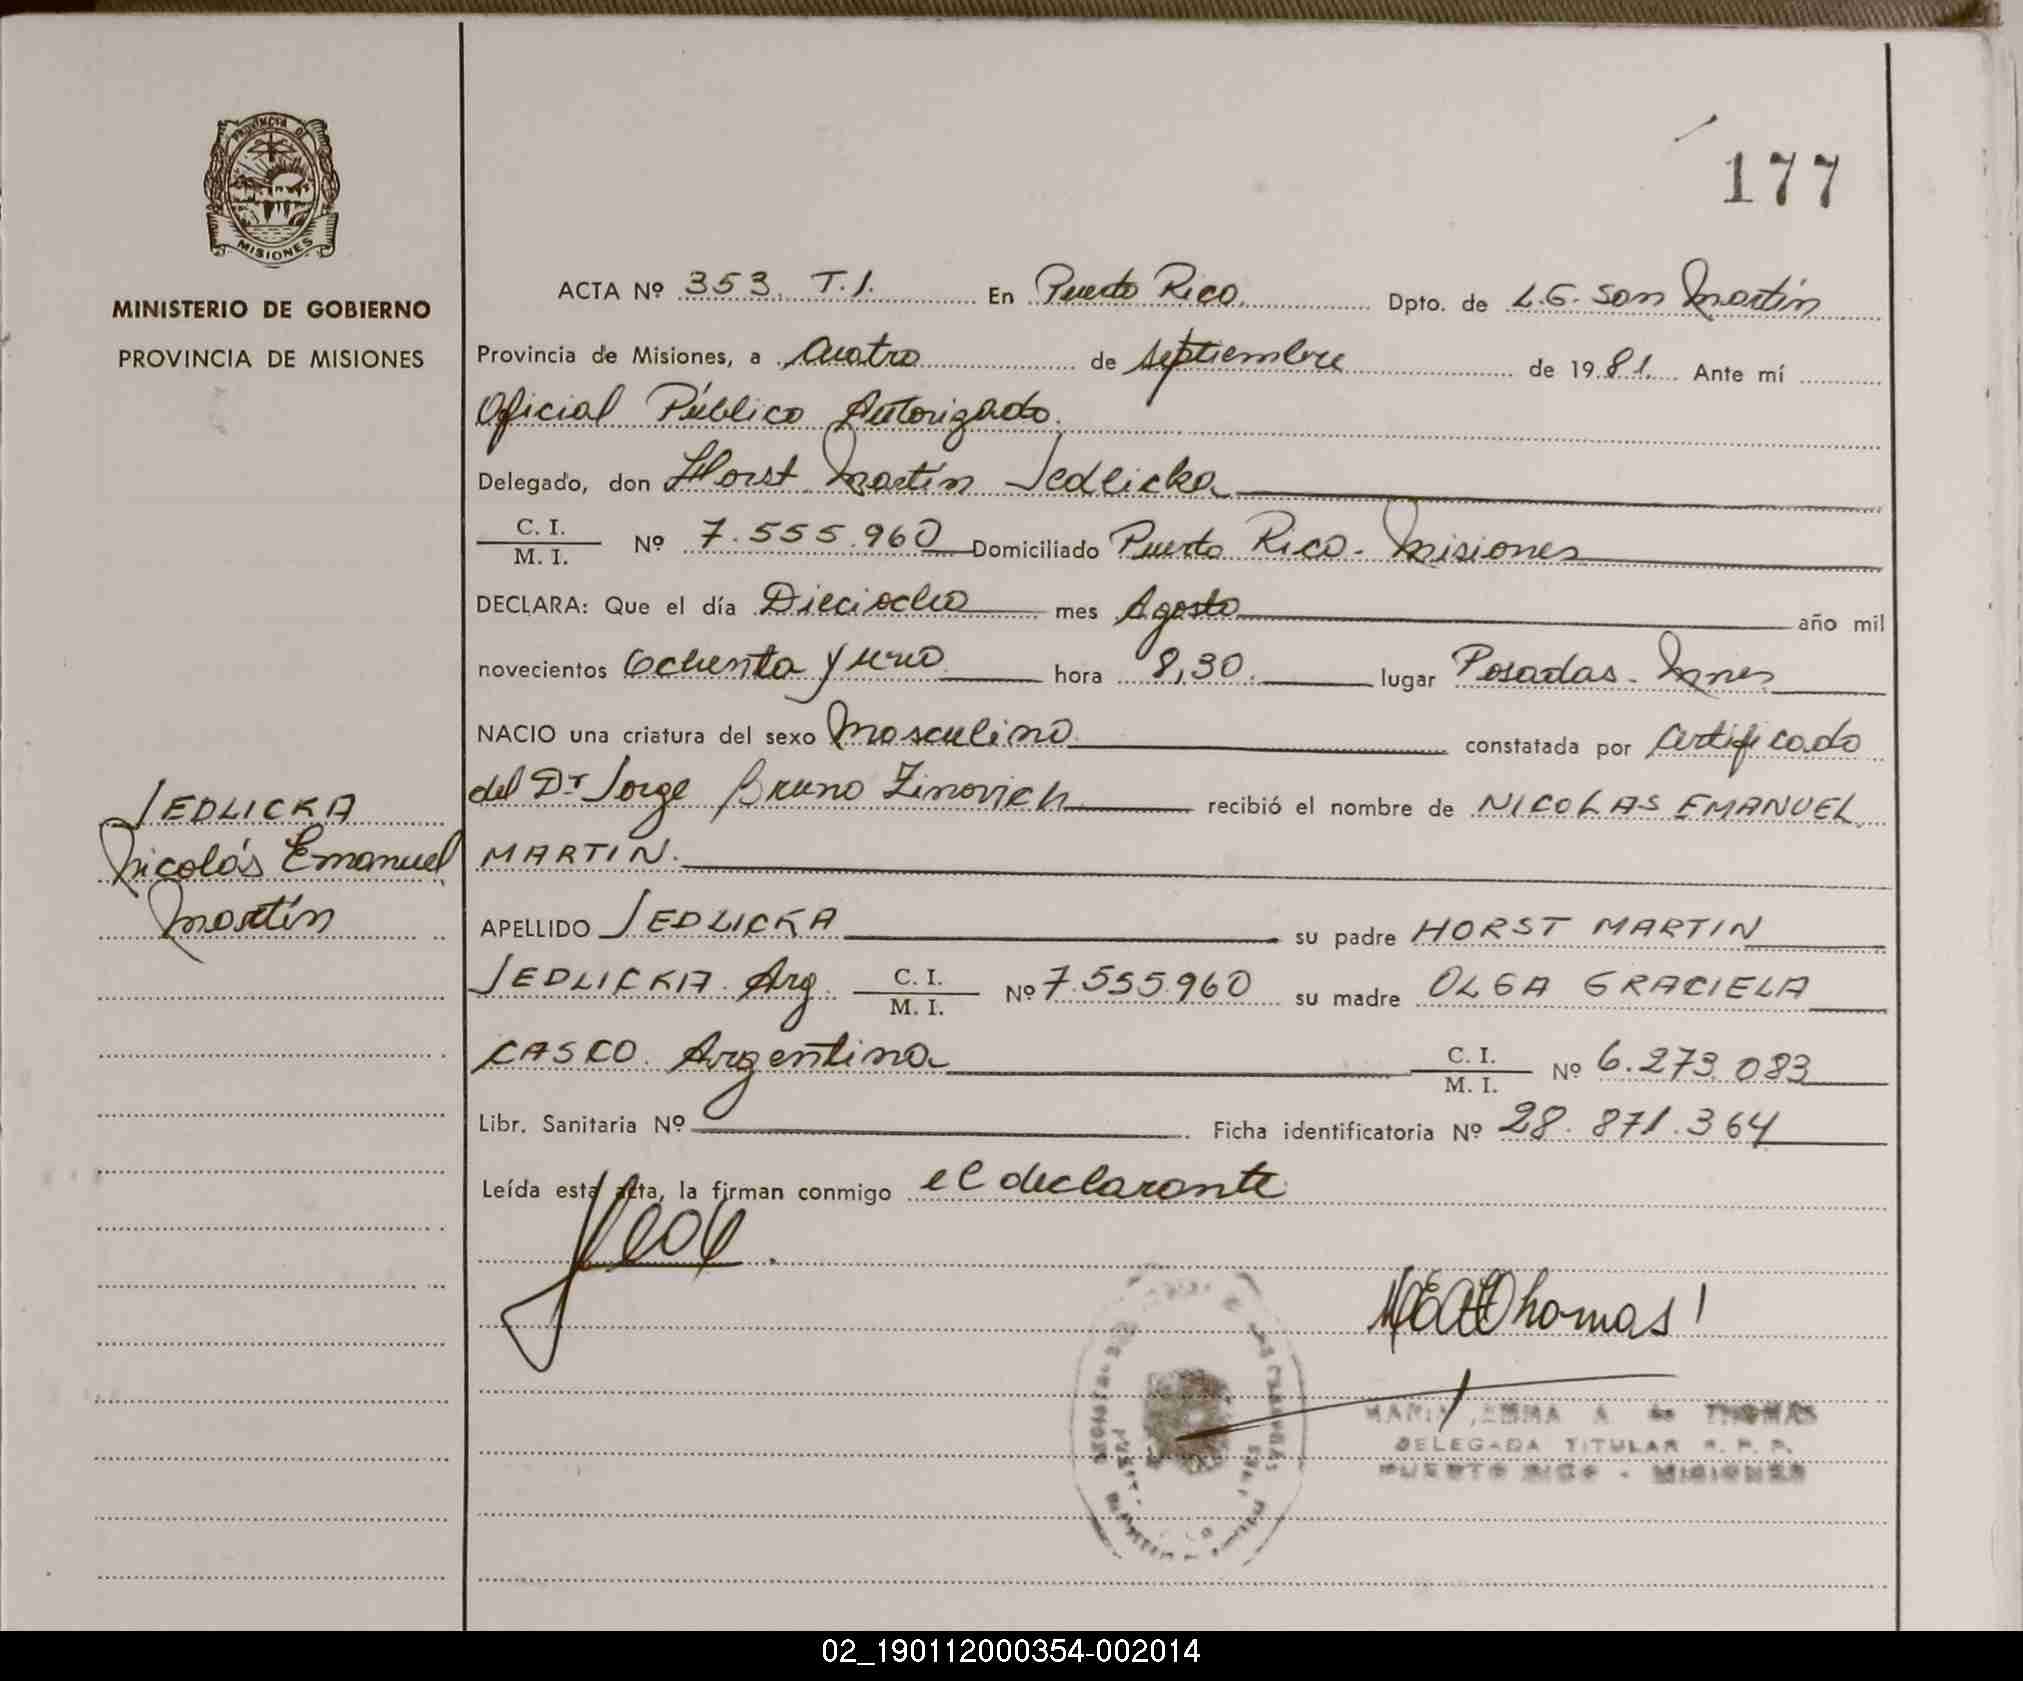 PROVINCIA DE
MISIONES
MINISTERIO DE GOBIERNO
PROVINCIA DE MISIONES
177
ACTA Nº 353. T.I. En Puerto Rico. Dpto. de L.G. San Martín
Provincia de Misiones, a Cuatro de septiembre de 1981. Ante mí
Oficial Público Autorizado.
Delegado, don Horst Martín Jedlicka
C. I.
M. I. Nº 7.555.960 Domiciliado Puerto Rico - Misiones
DECLARA: Que el día Dieciocho mes Agosto año mil
novecientos Ochenta y uno hora 8,30. lugar Posadas - Mnes
NACIO una criatura del sexo Masculino constatada por Certificado
del Dr Jorge Bruno Zinovich recibió el nombre de NICOLAS EMANUEL
MARTIN.
APELLIDO JEDLICKA su padre HORST MARTIN
JEDLICKA. Arg. C. I.
M. I. Nº 7.555.960 su madre OLGA GRACIELA
CASCO. Argentina C. I.
M. I. Nº 6.273.083
Libr. Sanitaria Nº . Ficha identificatoria Nº 28.871.364
Leída esta acta, la firman conmigo el declarante
JEDLICKA
Nicolás Emanuel
Martín
Thomas
MARIA EMMA A. de THOMAS
DELEGADA TITULAR R. P. P.
PUERTO RICO - MISIONES
02_190112000354-002014